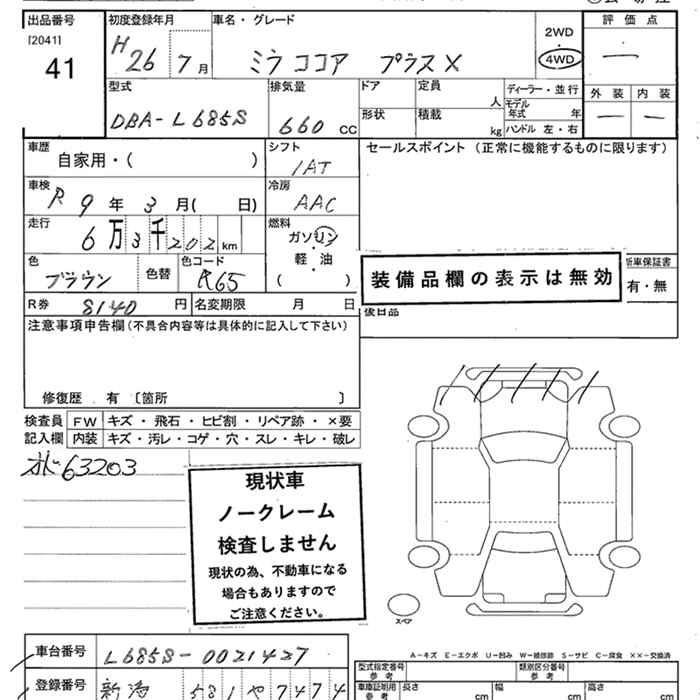 出品番号
[2041]
41
初度登録年月
H 26 7 月
車名・グレード
ミラ ココア プラス X
2WD
・
4WD
評価点
―
外装 内装
― ―
型式
DBA-L685S
排気量
660 CC
ドア
形状
定員
人
積載
kg
ディーラー・並行
モデル年式 年
ハンドル 左・右
車歴
自家用・( )
シフト
IAT
セールスポイント (正常に機能するものに限ります)
車検
R 9 年 3 月( 日)
冷房
AAC
走行
6 万 3 千 2 0 2 km
燃料
ガソリン
軽・油
( )
色
ブラウン
色替
色コード
R65
装備品欄の表示は無効
新車保証書
有・無
後日品
R券 8140 円
名変期限 月 日
注意事項申告欄(不具合内容等は具体的に記入して下さい)
修復歴 有 〔箇所 〕
検査員 FW キズ・飛石・ヒビ割・リペア跡・×要
記入欄 内装 キズ・汚レ・コゲ・穴・スレ・キレ・破レ
オド63203
現状車
ノークレーム
検査しません
現状の為、不動車になる
場合もありますので
ご注意ください。
スペア
車台番号 L685S-0021427
登録番号 新潟 581 や 7474
A-キズ E-エクボ U-凹み W-補修跡 S-サビ C-腐食 ××-交換済
型式指定番号
参考
類別区分番号
参考
車庫証明用
参考
長さ cm
幅 cm
高さ cm